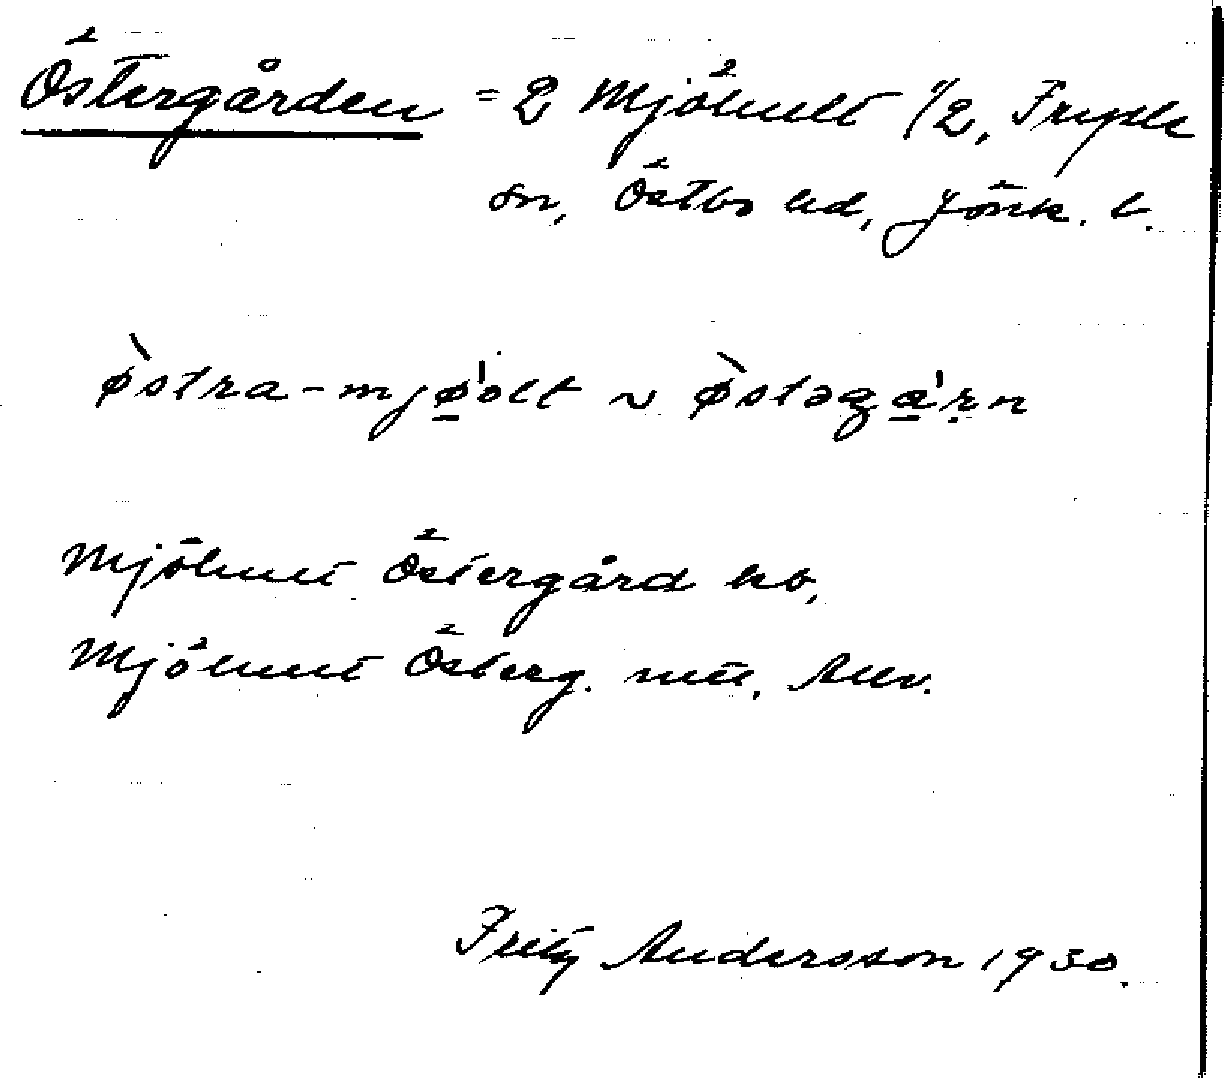 Östergården = 2 Mjöhult 1/2, Fryele
sn, Östbo hd, Jönk. l.
ø̀stra-mjø̱'olt ~ ø̀stəga̱'ṛn
Mjöhult Östergård hb,
Mjöhult Österg.
Fritz Andersson 1930.